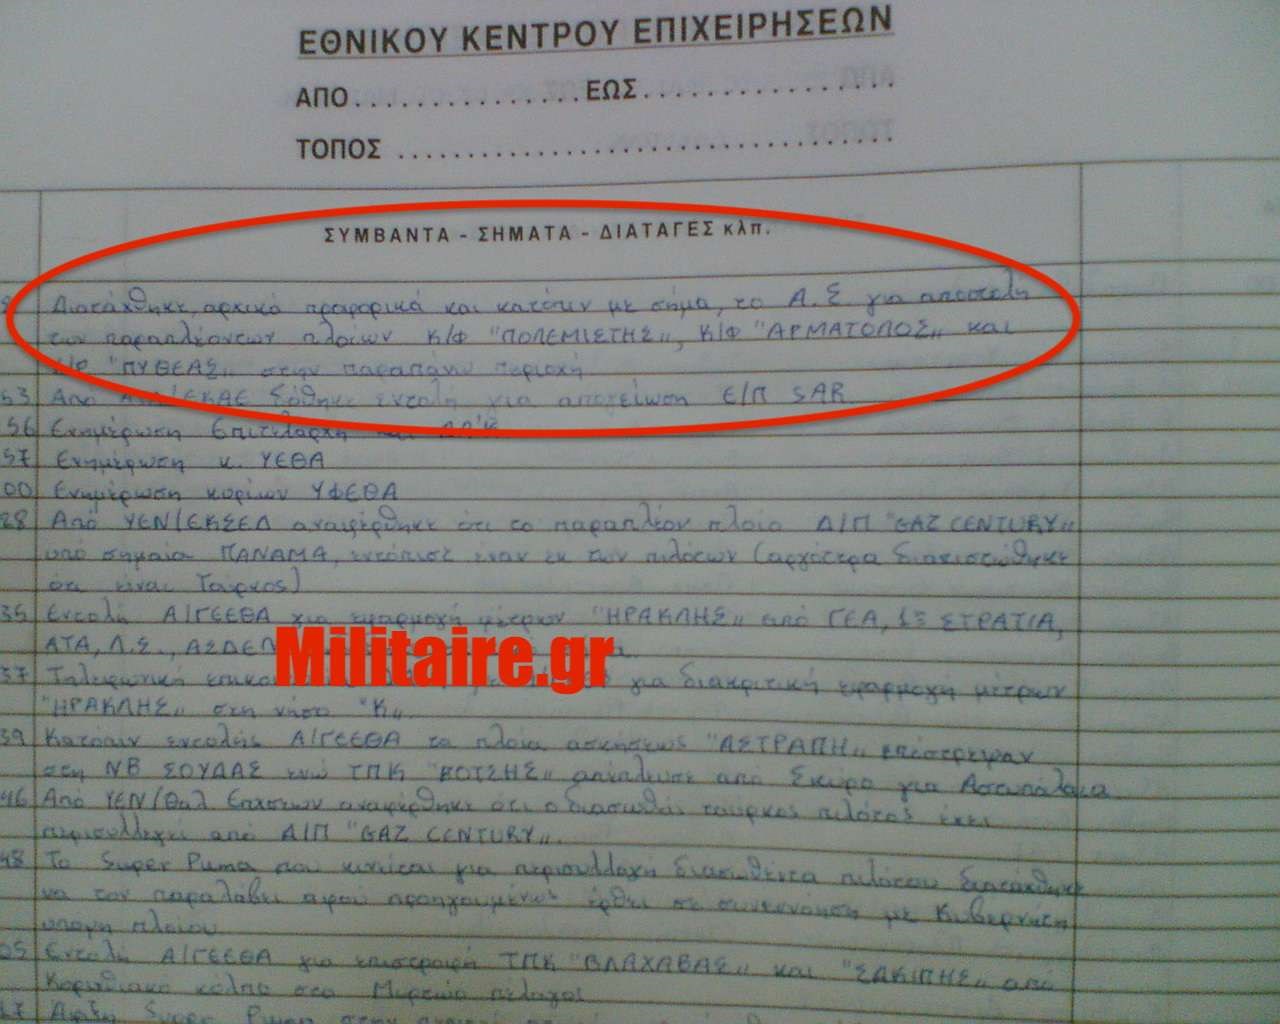 ΕΘΝΙΚΟΥ ΚΕΝΤΡΟΥ ΕΠΙΧΕΙΡΗΣΕΩΝ
ΑΠΟ...............ΕΩΣ..................
ΤΟΠΟΣ ...................................
ΣΥΜΒΑΝΤΑ - ΣΗΜΑΤΑ - ΔΙΑΤΑΓΕΣ κλπ.
Διατάχθηκε, αρχικά προφορικά και κατόπιν με σήμα, το Α.Σ για αποστολή
των παραπλέοντων πλοίων Κ/Φ "ΠΟΛΕΜΙΣΤΗΣ", Κ/Φ "ΑΡΜΑΤΟΛΟΣ" και
"ΠΥΘΕΑΣ" στην παραπάνω περιοχή
53 Από /ΕΚΑΕ δόθηκε εντολή για απογείωση Ε/Π SAR
56 Ενημέρωση Επιτελάρχη και
57 Ενημέρωση κ. ΥΕΘΑ
00 Ενημέρωση κυρίων ΥΦΕΘΑ
28 Από ΥΕΝ/ΕΚΣΕΔ αναφέρθηκε ότι το παραπλέον πλοίο Δ/Π "GAZ CENTURY"
υπό σημαία ΠΑΝΑΜΑ, εντόπισε έναν εκ των πιλότων (αργότερα διαπιστώθηκε
ότι είναι Τούρκος)
35 Εντολή Α/ΓΕΕΘΑ για εφαρμογή μέτρων "ΗΡΑΚΛΗΣ" από ΓΕΑ, 1η ΣΤΡΑΤΙΑ,
ΑΤΑ, Λ.Σ., ΑΣΔΕΝ
Militaire.gr
37 Τηλεφωνική για διακριτική εφαρμογή μέτρων
"ΗΡΑΚΛΗΣ" στη νήσο "Κ".
39 Κατόπιν εντολής Α/ΓΕΕΘΑ τα πλοία ασκήσεως "ΑΣΤΡΑΠΗ" επέστρεψαν
στη ΝΒ ΣΟΥΔΑΣ ενώ ΤΠΚ "ΒΟΤΣΗΣ" απέπλευσε από Σκύρο για Αστυπάλαια
46 Από ΥΕΝ/Θαλ Επιχ αναφέρθηκε ότι ο διασωθείς τούρκος πιλότος έχει
περισυλλεγεί από Δ/Π "GAZ CENTURY".
48 Το Super Puma που κινείται για περισυλλογή διασωθέντα πιλότου διατάχθηκε
να τον παραλάβει αφού προηγουμένως έρθει σε συνεννόηση με Κυβερνήτη
υπόψη πλοίου
05 Εντολή Α/ΓΕΕΘΑ για επιστροφή ΤΠΚ "ΒΛΑΧΑΒΑΣ" και "ΣΑΚΙΠΗΣ" από
Κορινθιακό κόλπο στο Μυρτώο πέλαγος
17 Άφιξη Super Puma στην